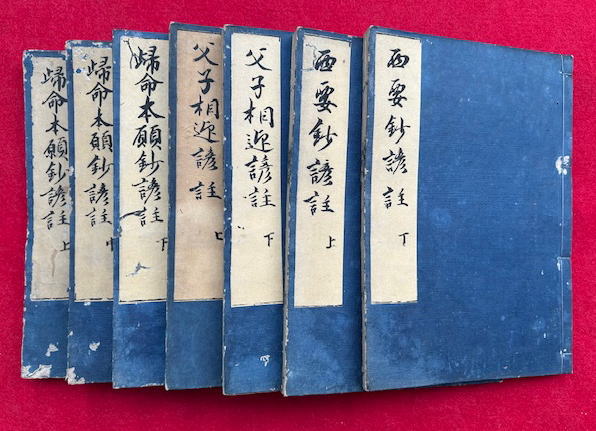 西要鈔諺註 下
西要鈔諺註 上
父子相迎諺註 下
父子相迎諺註 上
歸命本願鈔諺註 下
歸命本願鈔諺註 中
歸命本願鈔諺註 上